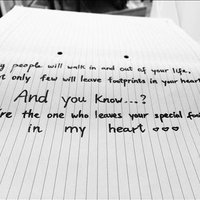 y people will walk in and out of your life,
t only few will leave footprints in your heart
And you know...?
're the one who leaves your special foo
in my heart ♡♡♡